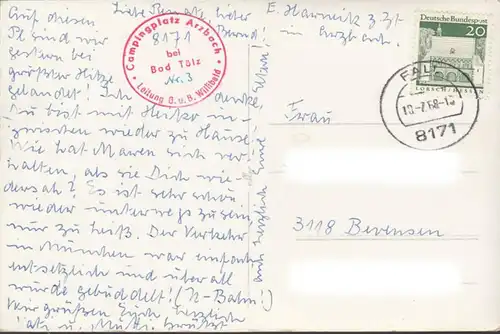 Auf diesen
Liebe Renate, lieber Bernd!
E. Harneit z. Zt.
in Arzbach.
Pl. sind wir
gestern bei
größter Hitze
gelandet! Ich denke,
Du bist mit Heiko in-
zwischen wieder zu Hause.
Wie hat Maren sich ver-
halten, als sie Dich wie-
dersah? Es ist sehr schön,
wieder unterwegs zu sein,
nur zu heiß. Der Verkehr
in München war einfach
entsetzlich und überall
wurde gebuddelt! (U-Bahn!)
Wir grüßen Euch herzlich
auch herzlich Eure Eltern!
Campingplatz Arzbach
8171
bei
Bad Tölz
Nr. 3
Leitung G. u. B. Willibald
DEUTSCHE BUNDESPOST
20
LORSCH/HESSEN
FALL
10.-7.68-1
8171
Frau
3118 Bevensen